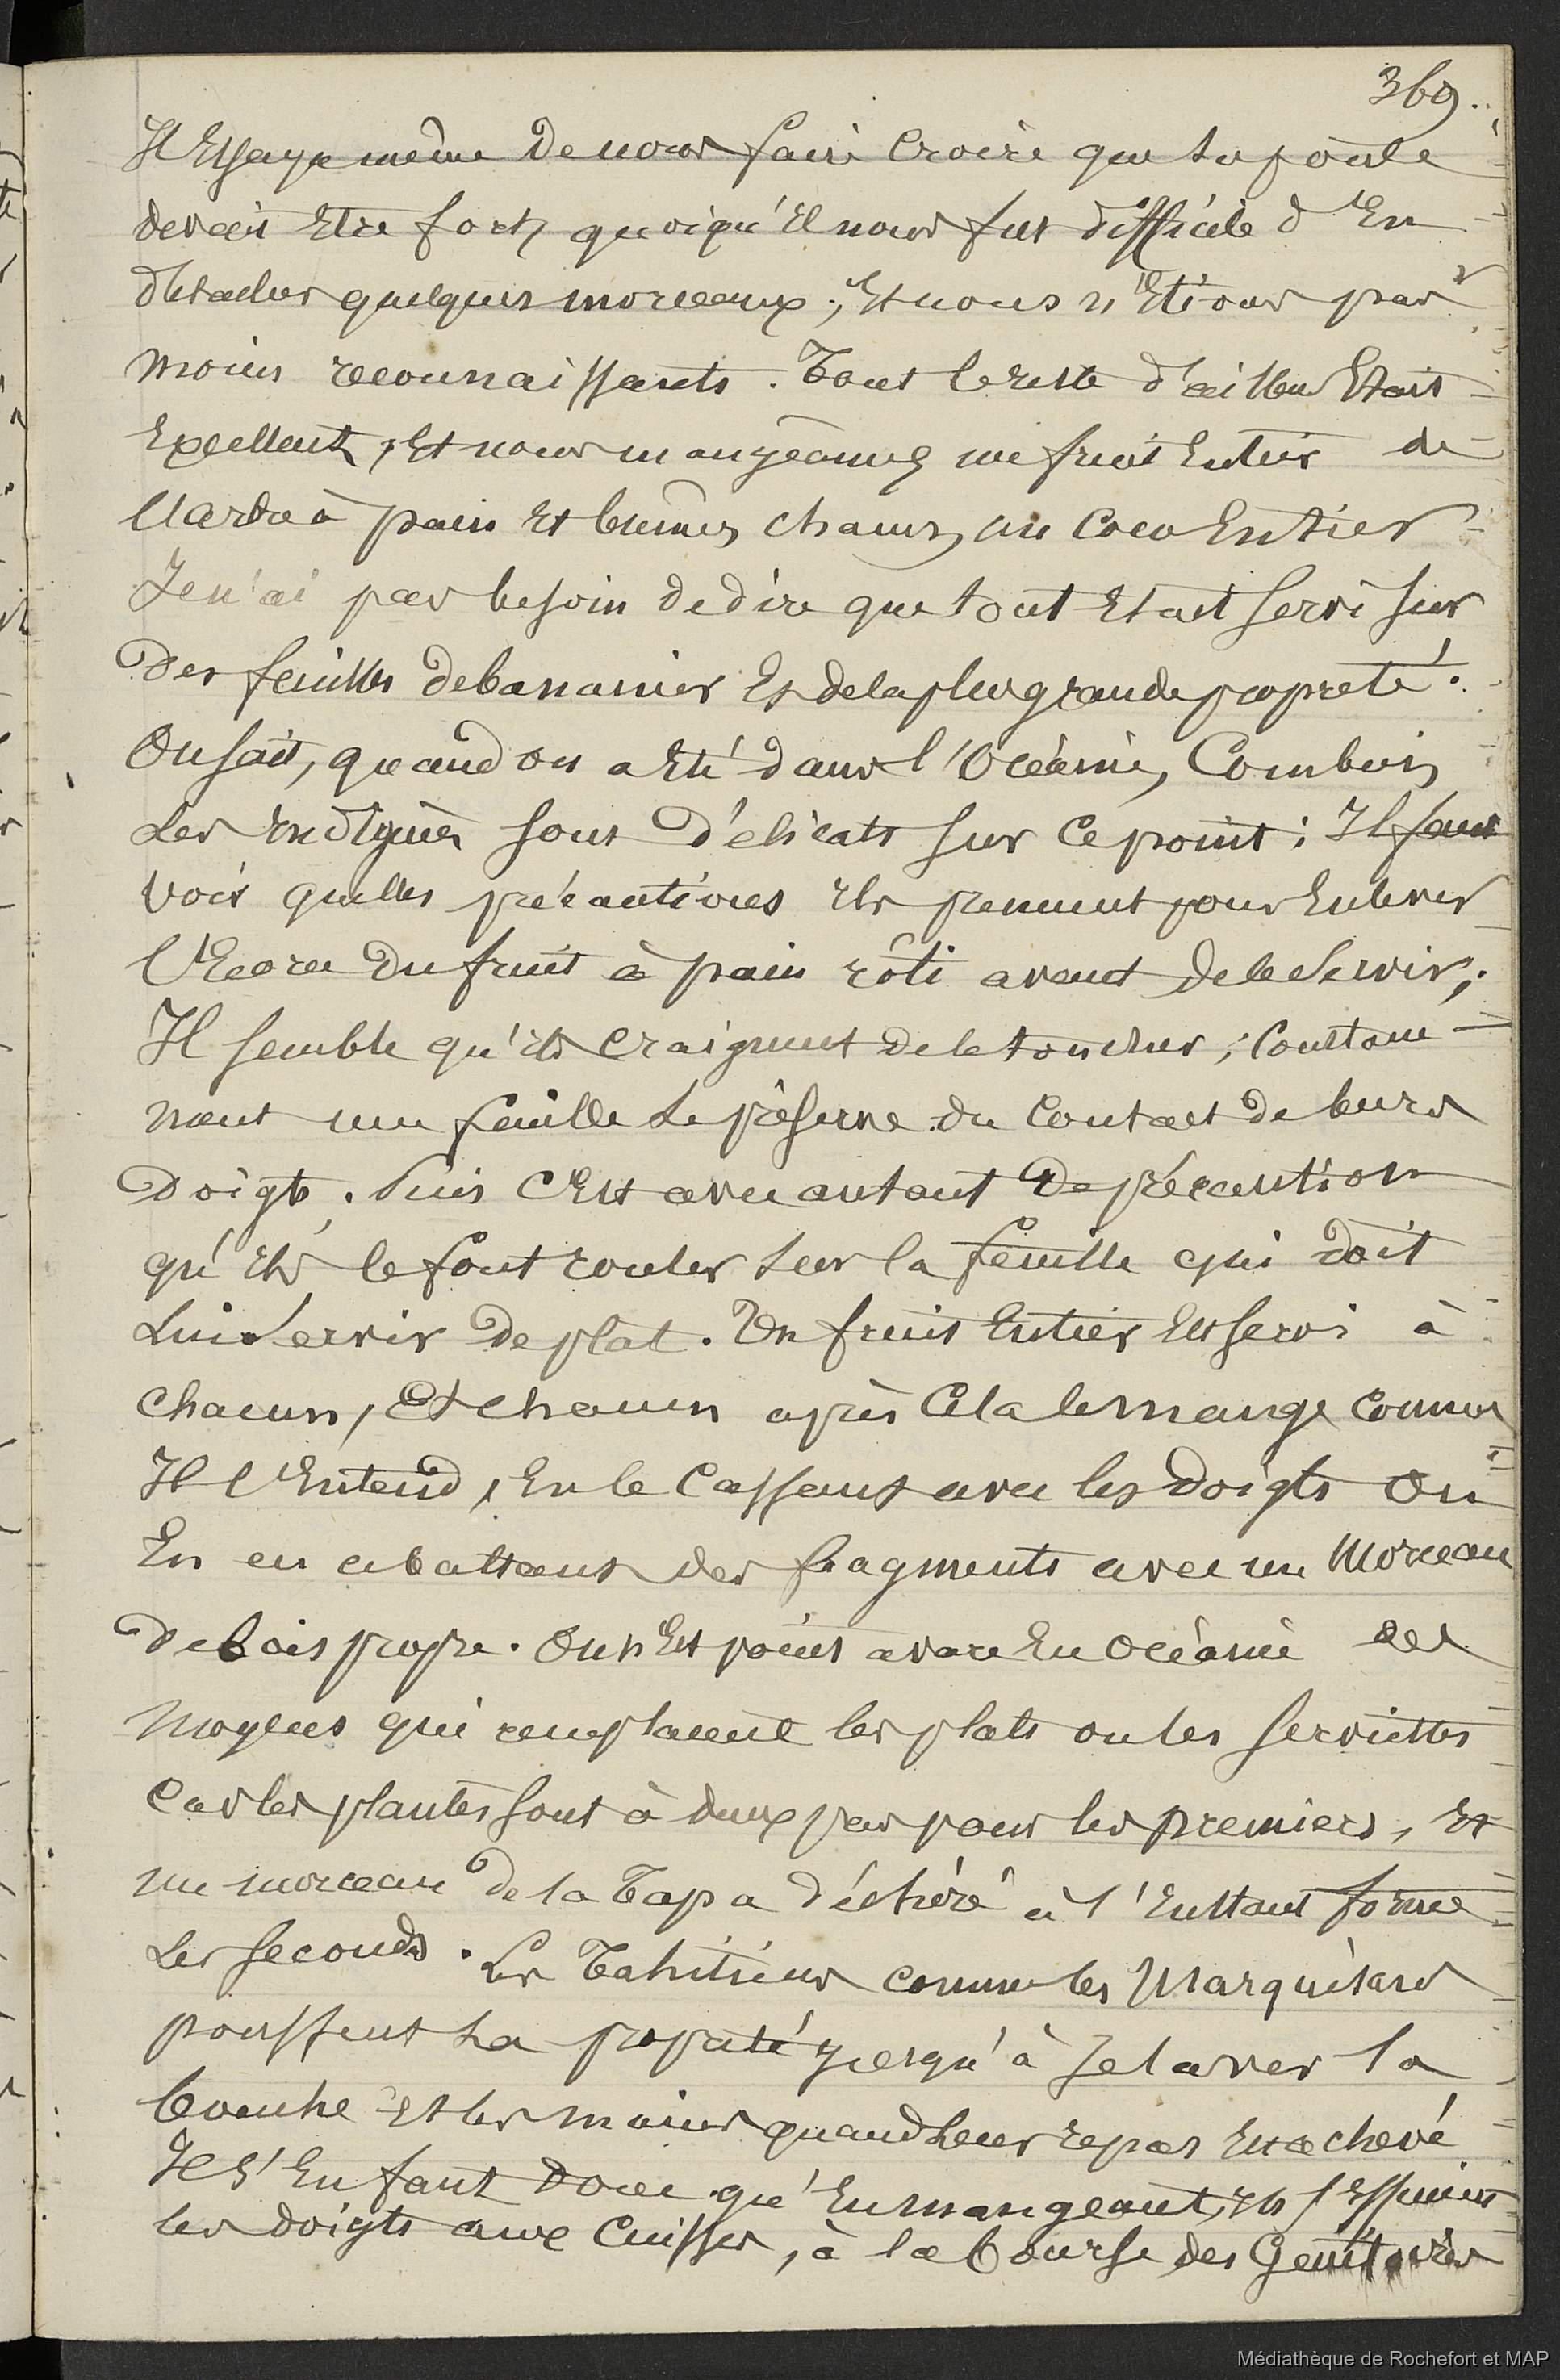 369.
Il Essaya même de nous faire Croire que sa poule
devait Etre forte quoiqu'il nous fut difficile d'En
détacher quelques morceaux ; Et nous n'Etions pas
moins reconnaissants. Tout le reste d'ailleurs Etait
Excellent, Et nous mangeames un fruit Entier de
l'arbre à pain Et bumes chacun un Coco Entier
Je n'ai pas besoin de dire que tout Etait servi sur
Des feuilles de bananier Et de la plus grande propreté.
On sait, quand on a Eté dans l'Océanie, Combien
les Indigènes sont Délicats sur Ce point ; Il faut
voir quelles précautions Ils prennent pour Enlever
l'Ecorce Du fruit à pain rôti avant de le Servir ;
Il semble qu'ils Craignent de le toucher ; Constam
ment une feuille le préserve du Contact de leurs
Doigts. Puis C'Est avec autant De précaution
qu'Ils le font rouler sur la feuille qui doit
lui Servir De plat. Un fruit Entier Est servi à
Chacun, Et Chacun après Cela le mange Comme
Il l'Entend, En le Cassant avec les Doigts Ou
En en abattant des fragments avec un Morceau
de bois propre. On n'Est point avare En Océanie des
Moyens qui remplacent les plats ou les serviettes
Car les plantes sont à deux pas pour les premiers, Et
un morceau de la Tapa déchiré à l'Instant forme
les seconds. Les Tahitiens comme les Marquisans
poussent La propreté jusqu'à se laver la
bouche et les mains quand leur repas Est achevé
Il s'En faut Donc qu'En mangeant, Ils s'Essuient
les doigts aux Cuisses, à la bourse des Genitoires